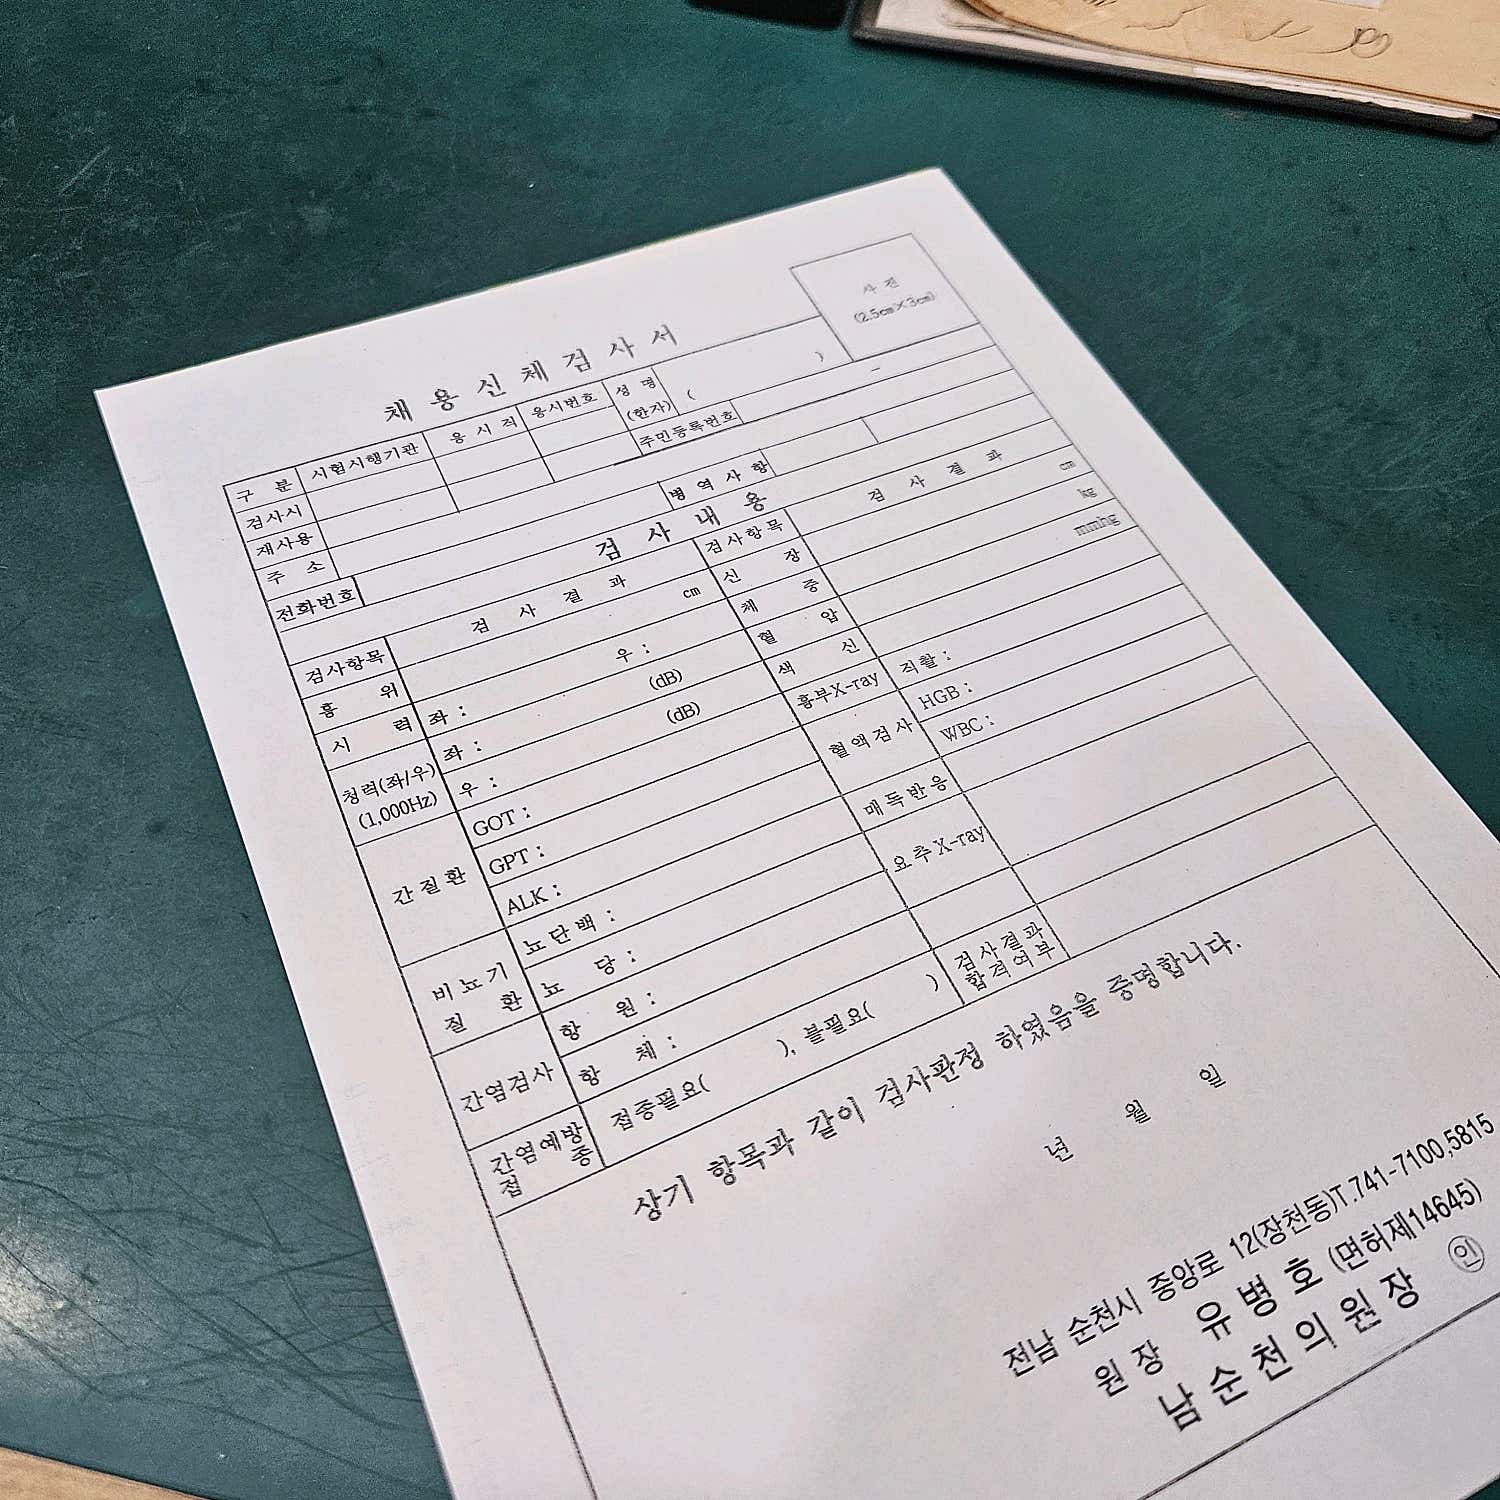 사 진
(2.5cm×3cm)
채 용 신 체 검 사 서
구 분 시험시행기관 응 시 직 응시번호 성 명 (한자) ( )
검사시 주민등록번호 -
재사용
주 소 병 역 사 항
전화번호
검 사 내 용
검사항목 검 사 결 과 검사항목 검 사 결 과
흉 위 cm 신 장 cm
시 력 좌 : 우 : 체 중 kg
청력(좌/우) (1,000Hz) 좌 : (dB) 혈 압 mmhg
우 : (dB) 색 신
간 질 환 GOT : 흉부X-ray 직촬 :
GPT : 혈액검사 HGB :
ALK : WBC :
비 뇨 기 질 환 뇨 단 백 : 매독반응
뇨 당 : 요 추 X-ray
간염검사 항 원 :
항 체 : 검 사 결 과 합 격 여 부
간염예방 접 종 접종필요( ), 불필요( )
상기 항목과 같이 검사판정 하였음을 증명합니다.
년 월 일
전남 순천시 중앙로 12(장천동)T.741-7100,5815
원 장 유 병 호 (면허제14645)
남 순 천 의 원 장 인